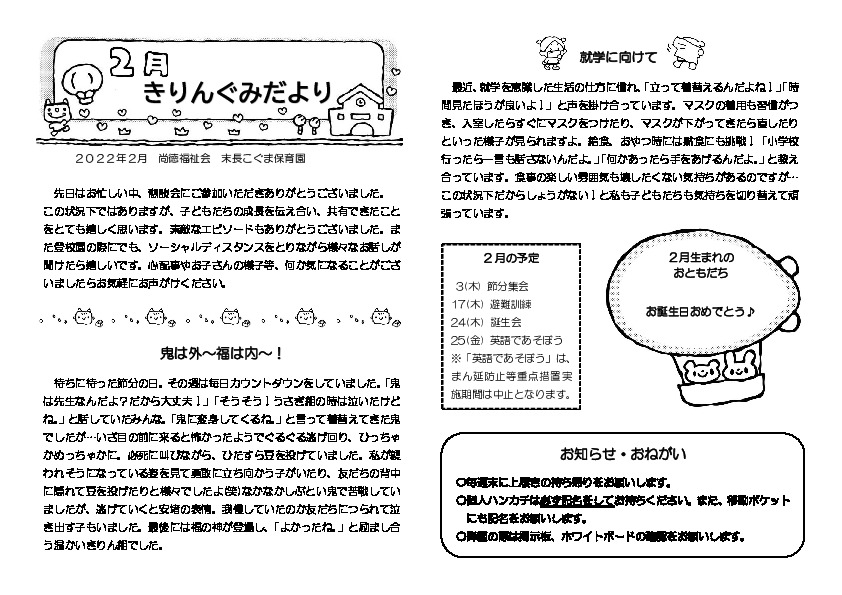 2月
きりんぐみだより
2022年2月　尚徳福祉会　末長こぐま保育園
先日はお忙しい中、懇談会にご参加いただきありがとうございました。
この状況下ではありますが、子どもたちの成長を伝え合い、共有できたこと
をとても嬉しく思います。素敵なエピソードもありがとうございました。ま
た登校園の際にでも、ソーシャルディスタンスをとりながら様々なお話しが
聞けたら嬉しいです。心配事やお子さんの様子等、何か気になることがござ
いましたらお気軽にお声がけください。
鬼は外～福は内～！
待ちに待った節分の日。その週は毎日カウントダウンをしていました。「鬼
は先生なんだよ？だから大丈夫！」「そうそう！うさぎ組の時は泣いたけど
ね。」と話していたみんな。「鬼に変身してくるね。」と言って着替えてきた鬼
でしたが…いざ目の前に来ると怖かったようでぐるぐる逃げ回り、ひっちゃ
かめっちゃかに。必死に叫びながら、ひたすら豆を投げていました。私が襲
われそうになっている姿を見て勇敢に立ち向かう子がいたり、友だちの背中
に隠れて豆を投げたりと様々でしたよ(笑)なかなかしぶとい鬼で苦戦してい
ましたが、逃げていくと安堵の表情。我慢していたのか友だちにつられて泣
き出す子もいました。最後には福の神が登場し、「よかったね。」と励まし合
う温かいきりん組でした。
就学に向けて
最近、就学を意識した生活の仕方に慣れ、「立って着替えるんだよね！」「時
間見たほうが良いよ！」と声を掛け合っています。マスクの着用も習慣がつ
き、入室したらすぐにマスクをつけたり、マスクが下がってきたら直したり
といった様子が見られますよ。給食、おやつ時には黙食にも挑戦！「小学校
行ったら一言も話さないんだよ。」「何かあったら手をあげるんだよ。」と教え
合っています。食事の楽しい雰囲気も壊したくない気持ちがあるのですが…
この状況下だからしょうがない！と私も子どもたちも気持ちを切り替えて頑
張っています。
2月の予定
3(木) 節分集会
17(木) 避難訓練
24(木) 誕生会
25(金) 英語であそぼう
※「英語であそぼう」は、
まん延防止等重点措置実
施期間は中止となります。
2月生まれの
おともだち
お誕生日おめでとう♪
お知らせ・おねがい
〇毎週末に上履きの持ち帰りをお願いします。
〇個人ハンカチは必ず記名をしてお持ちください。また、移動ポケット
にも記名をお願いします。
〇降園の際は掲示板、ホワイトボードの確認をお願いします。